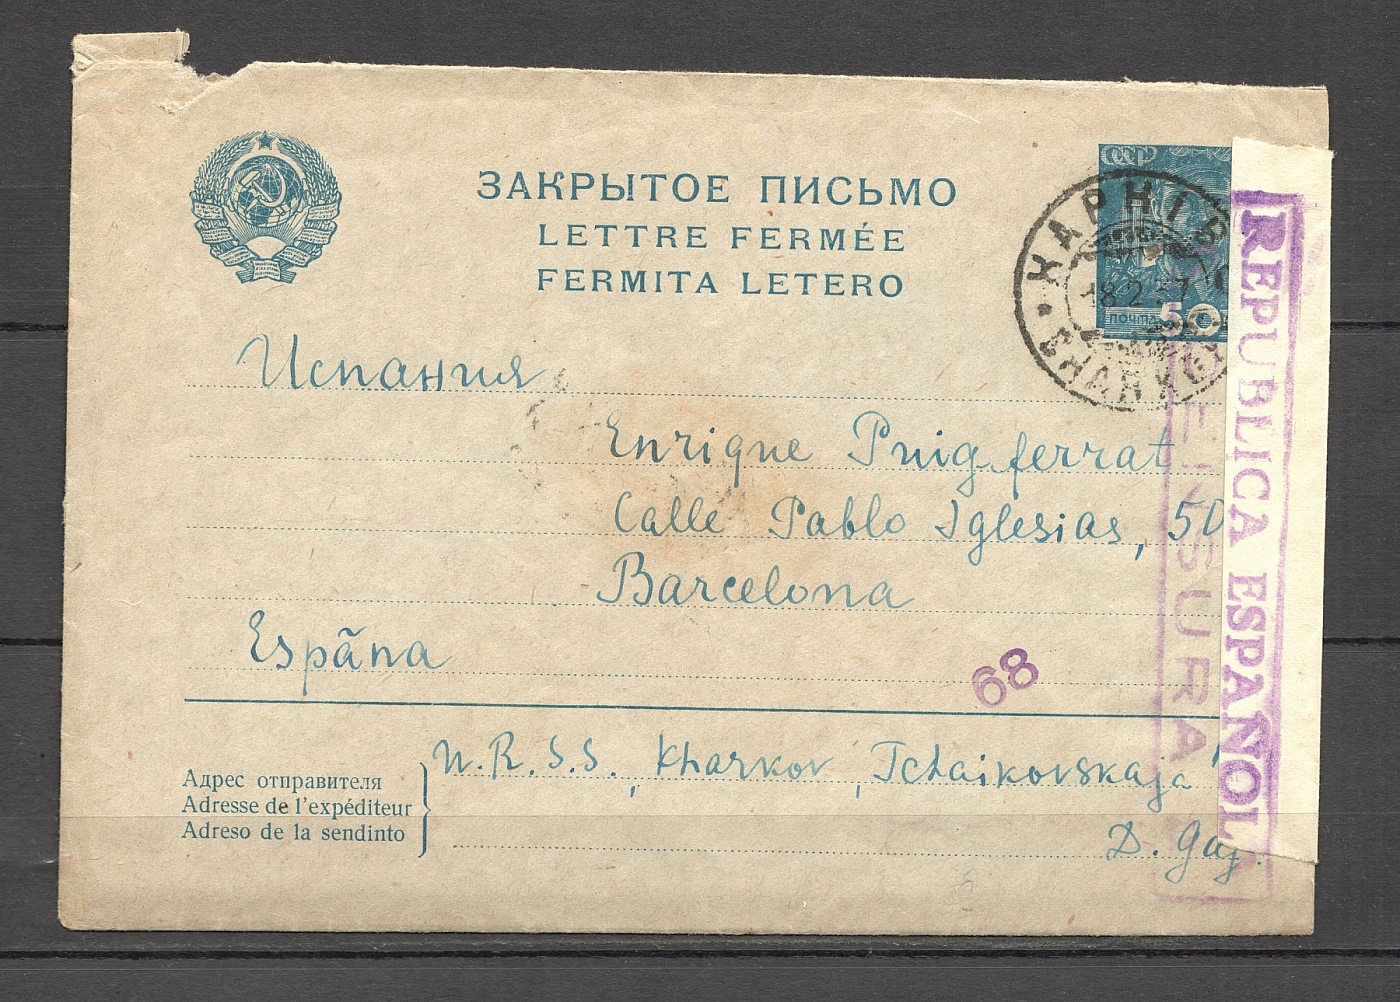 ЗАКРЫТОЕ ПИСЬМО
LETTRE FERMÉE
FERMITA LETERO
СССР
ПОЧТА
50
ХАРКІВ
18 2 37
KHARKOV
Испания
Enrique Puigferrat
Calle Pablo Iglesias, 50
Barcelona
Espãna
68
REPUBLICA ESPAÑOLA
CENSURA
Адрес отправителя
Adresse de l'expéditeur
Adreso de la sendinto
U.R.S.S., Kharkov, Tchaikovskaja
D. Gaj